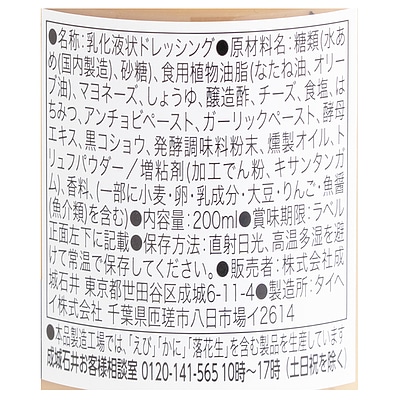 ●名称:乳化液状ドレッシング●原材料名:糖類(水あ
め(国内製造)、砂糖)、食用植物油脂(なたね油、オリー
ブ油)、マヨネーズ、しょうゆ、醸造酢、チーズ、食塩、は
ちみつ、アンチョビペースト、ガーリックペースト、酵母
エキス、黒コショウ、発酵調味料粉末、燻製オイル、ト
リュフパウダー/増粘剤(加工でん粉、キサンタンガ
ム)、香料、(一部に小麦・卵・乳成分・大豆・りんご・魚醤
(魚介類)を含む)●内容量:200ml●賞味期限:ラベル
正面左下に記載●保存方法:直射日光、高温多湿を避
けて常温で保存してください。●販売者:株式会社成
城石井 東京都世田谷区成城6-11-4●製造所:タイヘ
イ株式会社 千葉県匝瑳市八日市場イ2614
●本品製造工場では、「えび」「かに」「落花生」を含む製品を生産しています
成城石井お客様相談室 0120-141-565 10時〜17時 (土日祝を除く)